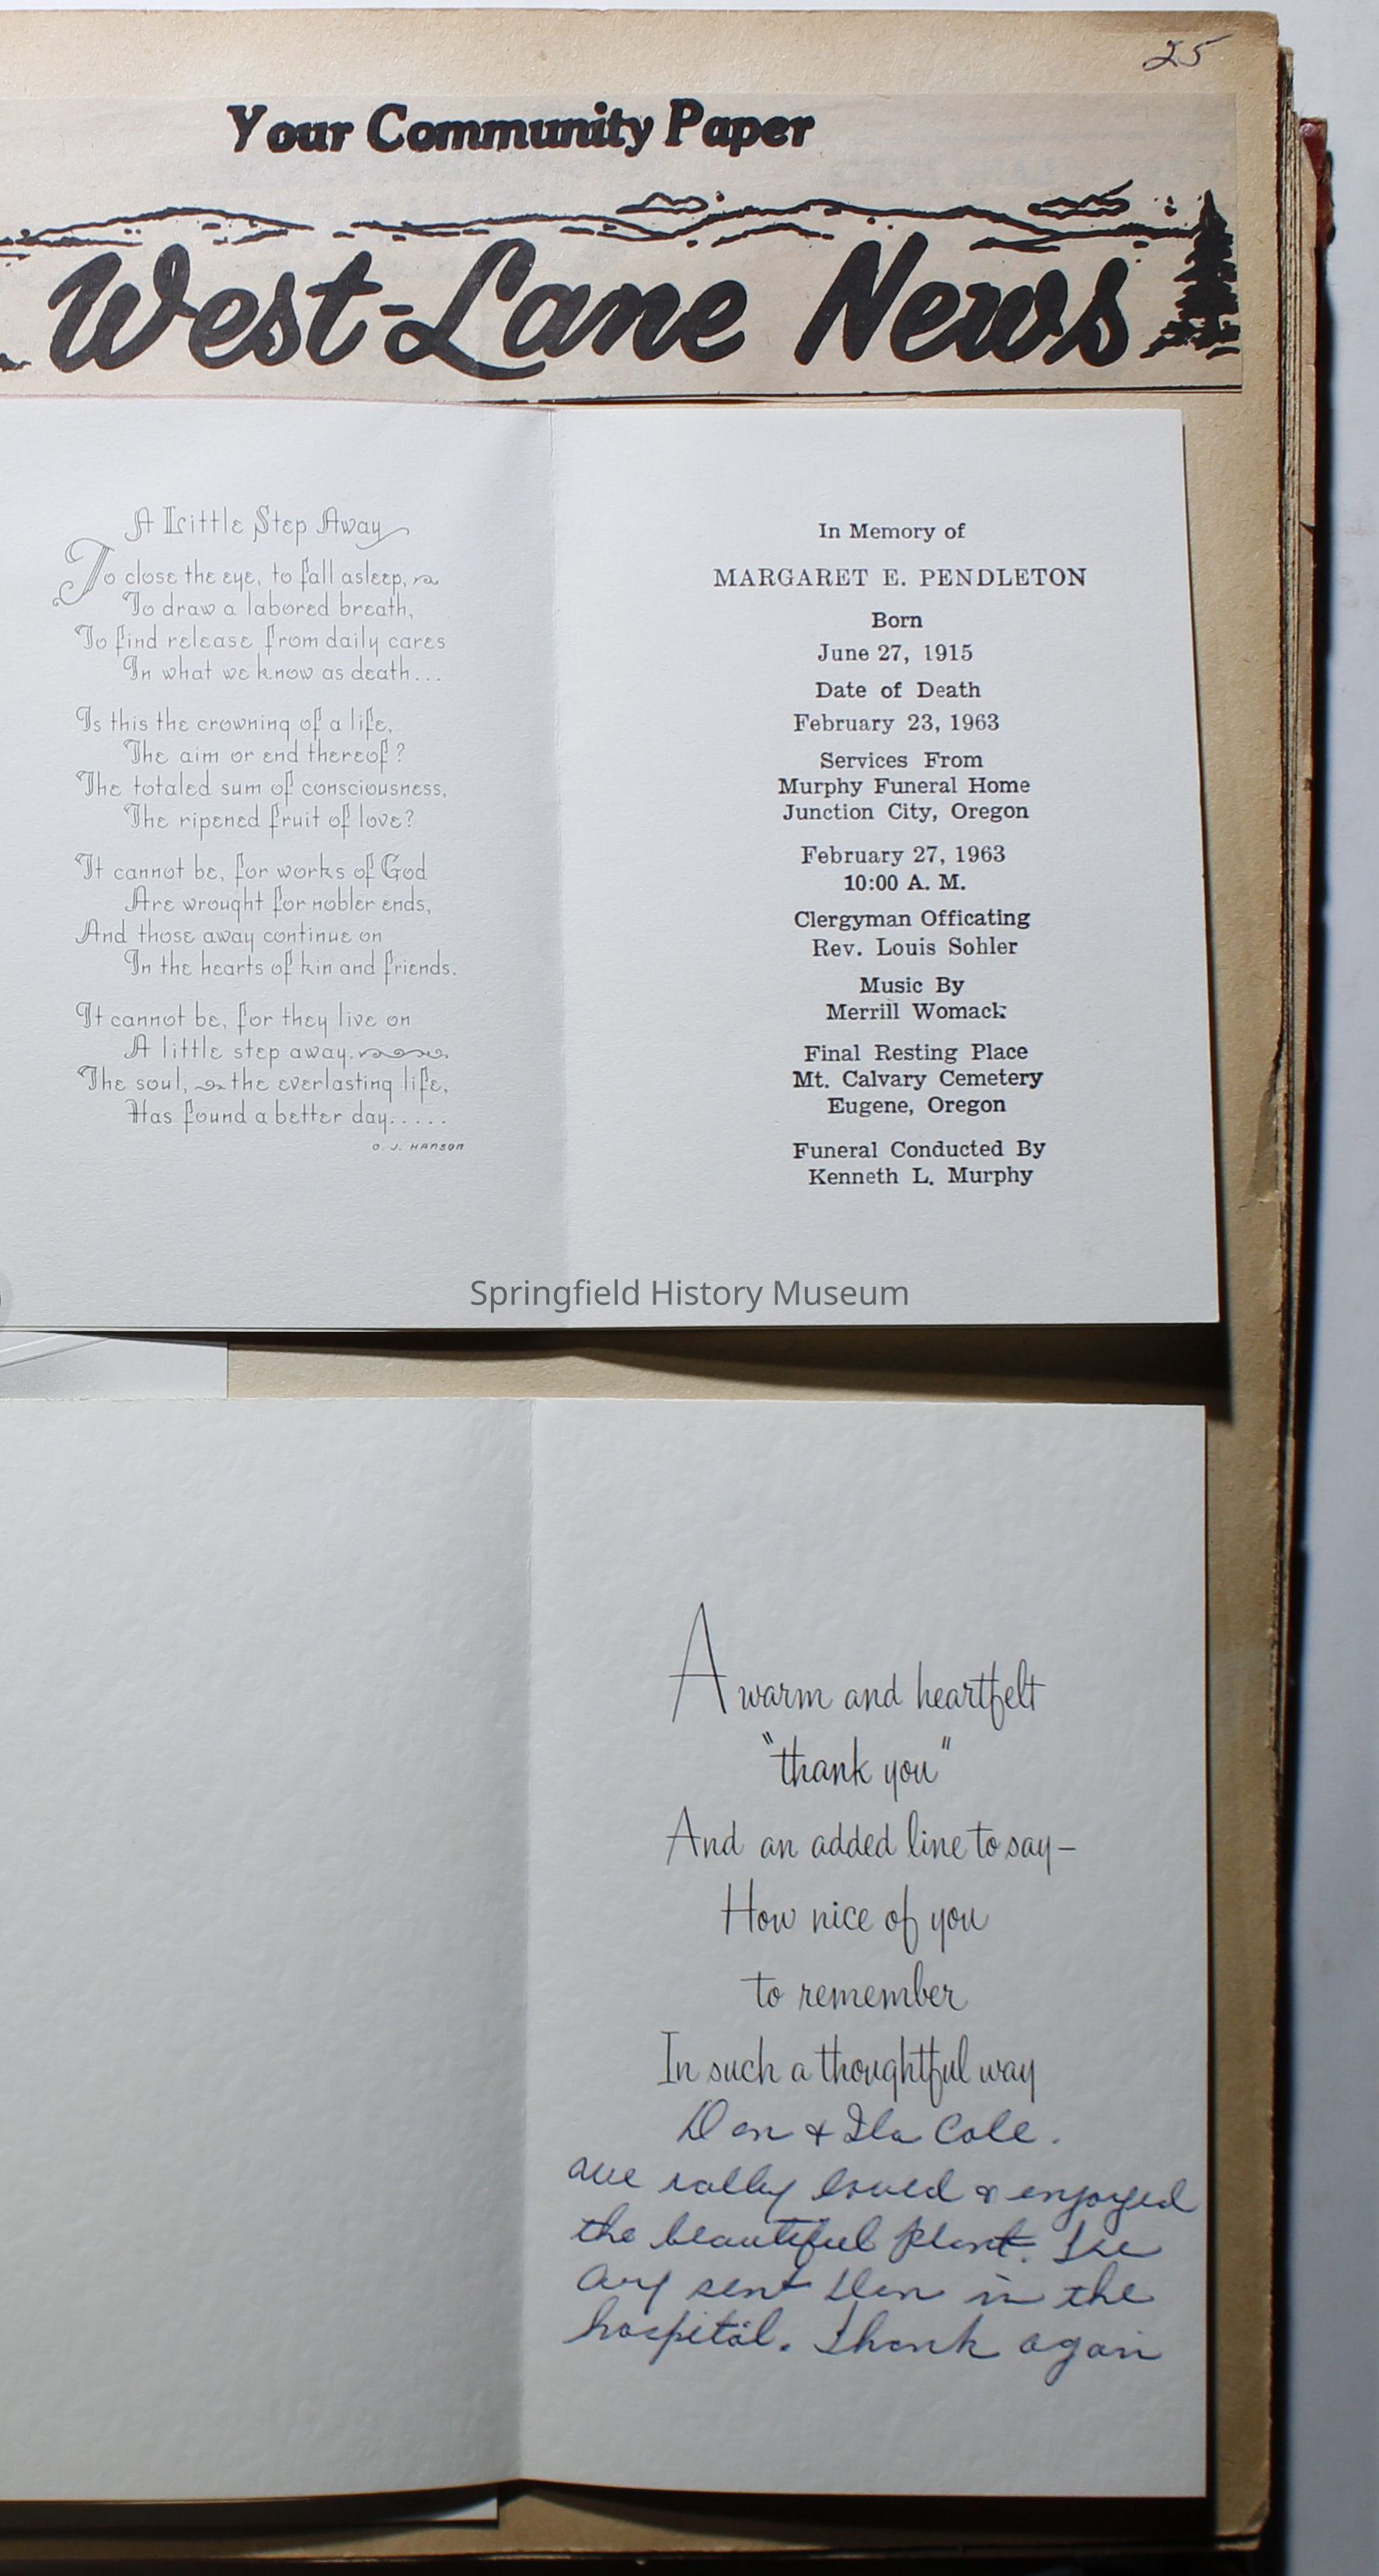 25
Your Community Paper
West-Lane News
A Little Step Away
To close the eye, to fall asleep,
To draw a labored breath,
To find release from daily cares
In what we know as death...
Is this the crowning of a life,
The aim or end thereof?
The totaled sum of consciousness,
The ripened fruit of love?
It cannot be, for works of God
Are wrought for nobler ends,
And those away continue on
In the hearts of kin and friends.
It cannot be, for they live on
A little step away.
The soul, the everlasting life,
Has found a better day.....
O. J. HANSON
In Memory of
MARGARET E. PENDLETON
Born
June 27, 1915
Date of Death
February 23, 1963
Services From
Murphy Funeral Home
Junction City, Oregon
February 27, 1963
10:00 A. M.
Clergyman Officating
Rev. Louis Sohler
Music By
Merrill Womack
Final Resting Place
Mt. Calvary Cemetery
Eugene, Oregon
Funeral Conducted By
Kenneth L. Murphy
Springfield History Museum
A warm and heartfelt
"thank you"
And an added line to say—
How nice of you
to remember
In such a thoughtful way
Den & Ila Cole.
we rally loved & enjoyed
the beautiful plant.
sent Den in the
hospital. Thank again